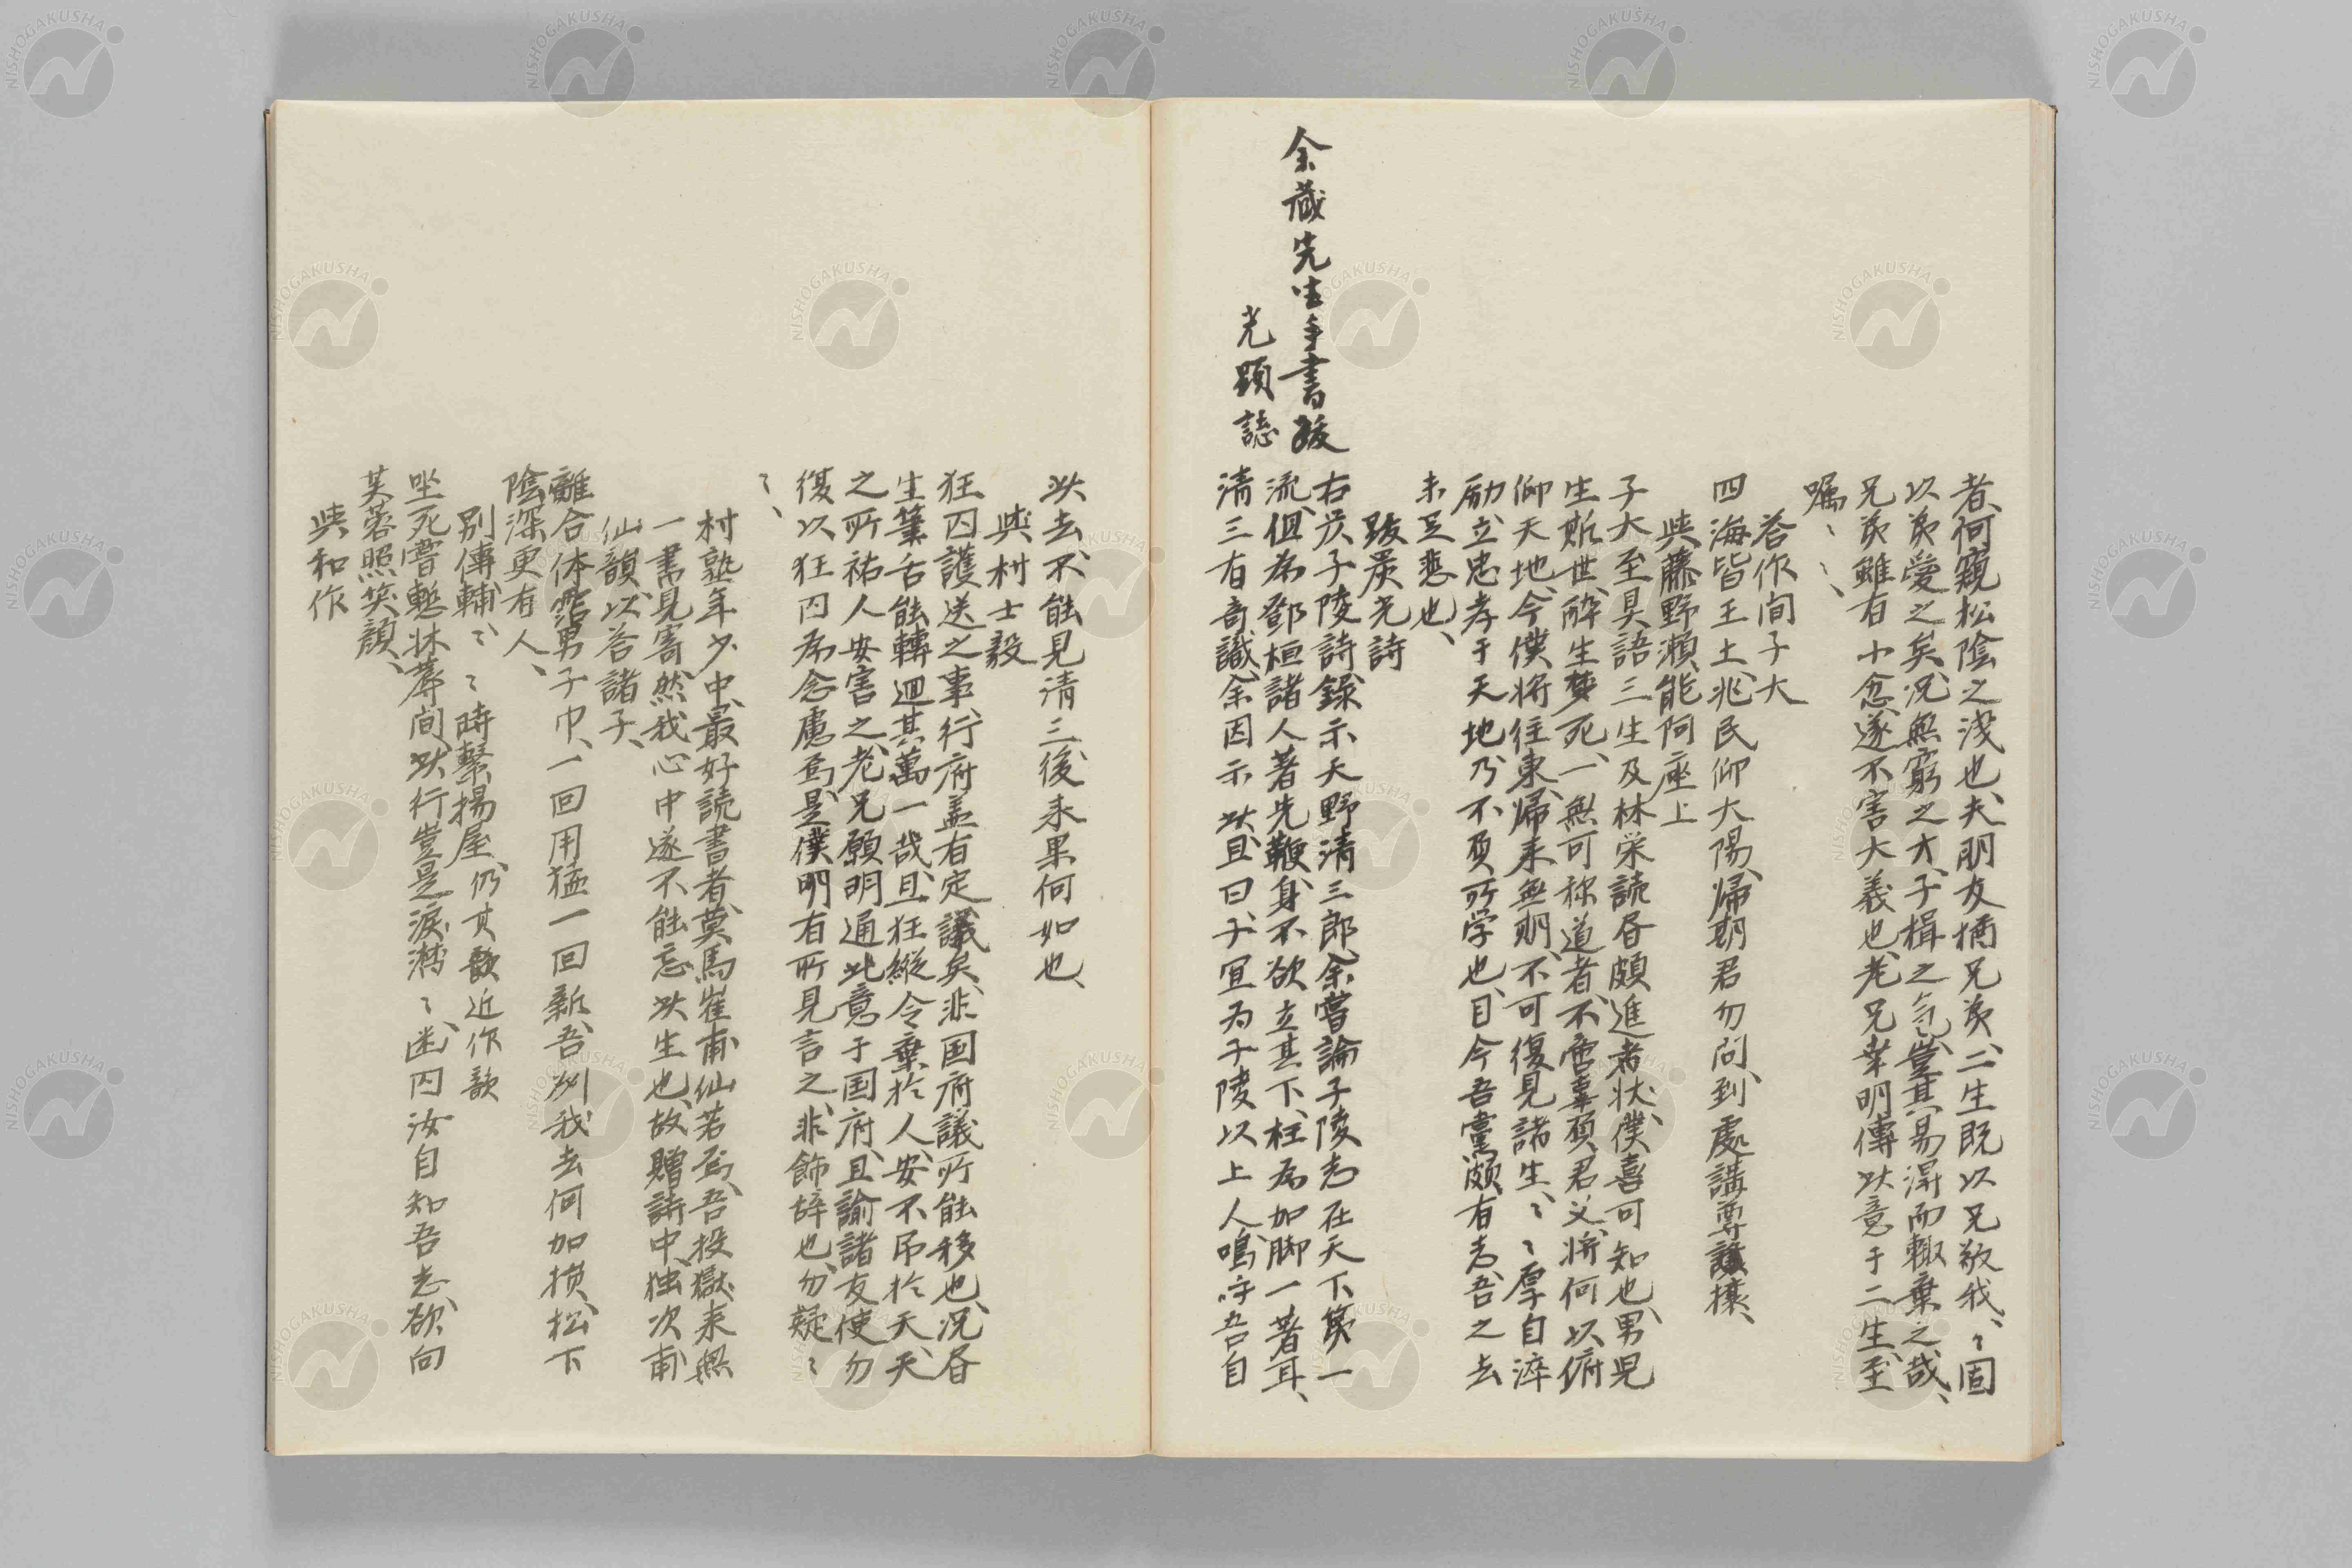 者、何窺松陰之浅也、夫朋友猶兄弟、二生既以兄敬我、〻固
以弟愛之矣、況無窮之才、子楫之気、豈其易得而輙棄之哉、
兄弟雖有小忿、遂不害大義也、老兄幸明傳此意于二生、至
嘱〻〻、
答作間子大
四海皆王土、兆民仰大陽、帰期君勿問、到處講尊攘、
與藤野瀬能阿座上
子大至具語三生及林栄読昏頗進者状、僕喜可知也、男児
生斯世、酔生夢死、一無可称道者、不啻辜負君父、将何以俯
仰天地、今僕将往東、帰来無期、不可復見諸生、〻〻厚自淬
励、立忠孝于天地、乃不負所学也、目今吾党頗有志、吾之去
未足悲也、
跋炭光詩
余蔵先生手書跋
光顕誌
右炭子陵詩、録示天野清三郎、余嘗論子陵志在天下第一
流、但為鄧桓諸人著先鞭、身不欲立其下、枉為加脚一著耳、
清三有奇識、余因示此、且曰、子宜為子陵以上人、鳴呼吾自
此去、不能見清三後来果何如也、
與村士毅
狂囚護送之事、行府盖有定議矣、非国府議所能移也、況昏
生筆舌能轉迴其萬一哉、且狂縦令棄於人、安不吊於天、天
之所祐、人安害之、老兄願明通此意于国府、且諭諸友使勿
復以狂囚為念慮焉、是僕明有所見言之、非飾辞也、勿疑〻
〻、
村塾年少中、最好読書者、莫馬崔甫仙若焉、吾投獄来無
一書見寄、然我心中遂不能忘此生也、故贈詩中、独次甫
仙韻、以答諸子、
離合体 男子巾、一回用猛一回新、吾 我去何加損、松下
陰深更有人、
別傳輔〻〻時繋揚屋、仍其歌近作歌
坐死嘗慙牀蓐間、此行豈是涙潸〻、送囚汝自知吾志、欲向
芙蓉照笑顔、
與和作